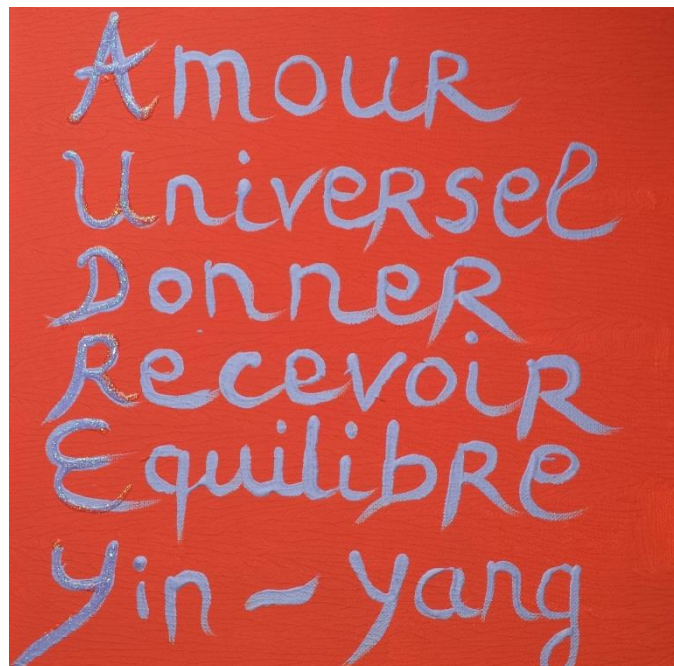 Amour
Universel
Donner
Recevoir
Equilibre
Yin - Yang